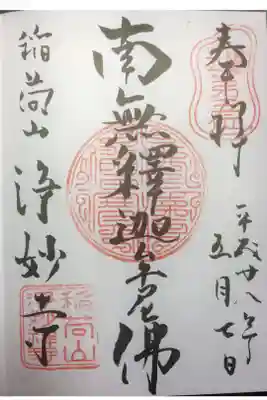 奉拝
平成廿八年
五月七日
南無釋迦牟尼佛
稲荷山
浄妙寺